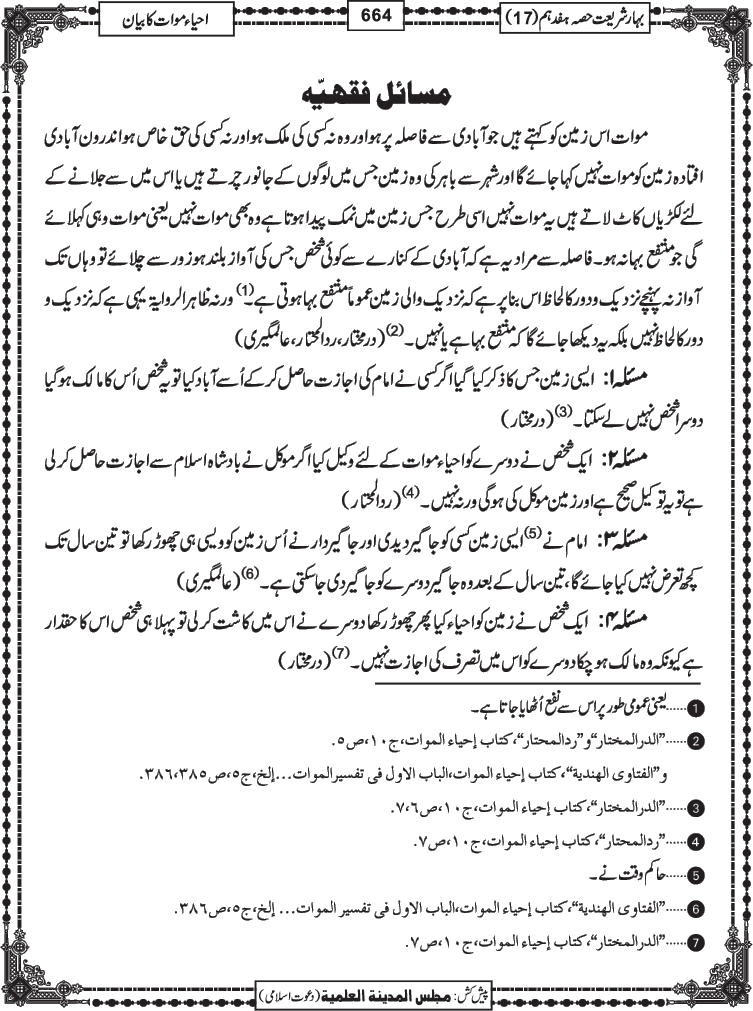 بہارشریعت حصہ ہفدہم (17)
664
احیاءِ موات کا بیان
مسائل فقہیّہ
موات اس زمین کو کہتے ہیں جو آبادی سے فاصلہ پر ہو اور وہ نہ کسی کی ملک ہو اور نہ کسی کی حق خاص ہو اندرون آبادی
افتادہ زمین کو موات نہیں کہا جائے گا اور شہر سے باہر کی وہ زمین جس میں لوگوں کے جانور چرتے ہیں یا اس میں سے جلانے کے
لئے لکڑیاں کاٹ لاتے ہیں یہ موات نہیں اسی طرح جس زمین میں نمک پیدا ہوتا ہے وہ بھی موات نہیں یعنی موات وہی کہلائے
گی جو منتفع بہا نہ ہو۔ فاصلہ سے مراد یہ ہے کہ آبادی کے کنارے سے کوئی شخص جس کی آواز بلند ہو زور سے چلائے تو وہاں تک
آواز نہ پہنچے نزدیک و دور کا لحاظ اس بنا پر ہے کہ نزدیک والی زمین عموماً منتفع بہا ہوتی ہے۔(1) ورنہ ظاہر الروایۃ یہی ہے کہ نزدیک و
دور کا لحاظ نہیں بلکہ یہ دیکھا جائے گا کہ منتفع بہا ہے یا نہیں۔(2) (درمختار، ردالمحتار، عالمگیری)
مسئلہ ۱: ایسی زمین جس کا ذکر کیا گیا اگر کسی نے امام کی اجازت حاصل کرکے اُسے آباد کیا تو یہ شخص اُس کا مالک ہوگیا
دوسرا شخص نہیں لے سکتا۔(3) (درمختار)
مسئلہ ۲: ایک شخص نے دوسرے کو احیاء موات کے لئے وکیل کیا اگر موکل نے بادشاہ اسلام سے اجازت حاصل کرلی
ہے تو یہ توکیل صحیح ہے اور زمین موکل کی ہوگی ورنہ نہیں۔(4) (ردالمحتار)
مسئلہ ۳: امام نے(5) ایسی زمین کسی کو جاگیر دیدی اور جاگیردار نے اُس زمین کو ویسی ہی چھوڑ رکھا تو تین سال تک
کچھ تعرض نہیں کیا جائے گا، تین سال کے بعد وہ جاگیر دوسرے کو جاگیر دی جاسکتی ہے۔(6) (عالمگیری)
مسئلہ ۴: ایک شخص نے زمین کو احیاء کیا پھر چھوڑ رکھا دوسرے نے اس میں کاشت کرلی تو پہلا ہی شخص اس کا حقدار
ہے کیونکہ وہ مالک ہو چکا دوسرے کو اس میں تصرف کی اجازت نہیں۔(7) (درمختار)
1......یعنی عمومی طور پر اس سے نفع اُٹھایا جاتا ہے۔
2......”الدرالمختار“ و ”ردالمحتار“، کتاب إحیاء الموات، ج۱۰، ص۵.
و ”الفتاوی الھندیة“، کتاب إحیاء الموات، الباب الاول فی تفسیر الموات...إلخ، ج۵، ص۳۸۵، ۳۸۶.
3......”الدرالمختار“، کتاب إحیاء الموات، ج۱۰، ص۶، ۷.
4......”ردالمحتار“، کتاب إحیاء الموات، ج۱۰، ص۷.
5......حاکم وقت نے۔
6......”الفتاوی الھندیة“، کتاب إحیاء الموات، الباب الاول فی تفسیر الموات... إلخ، ج۵، ص۳۸۶.
7......”الدرالمختار“، کتاب إحیاء الموات، ج۱۰، ص۷.
پیش کش: مجلس المدینة العلمیة (دعوت اسلامی)